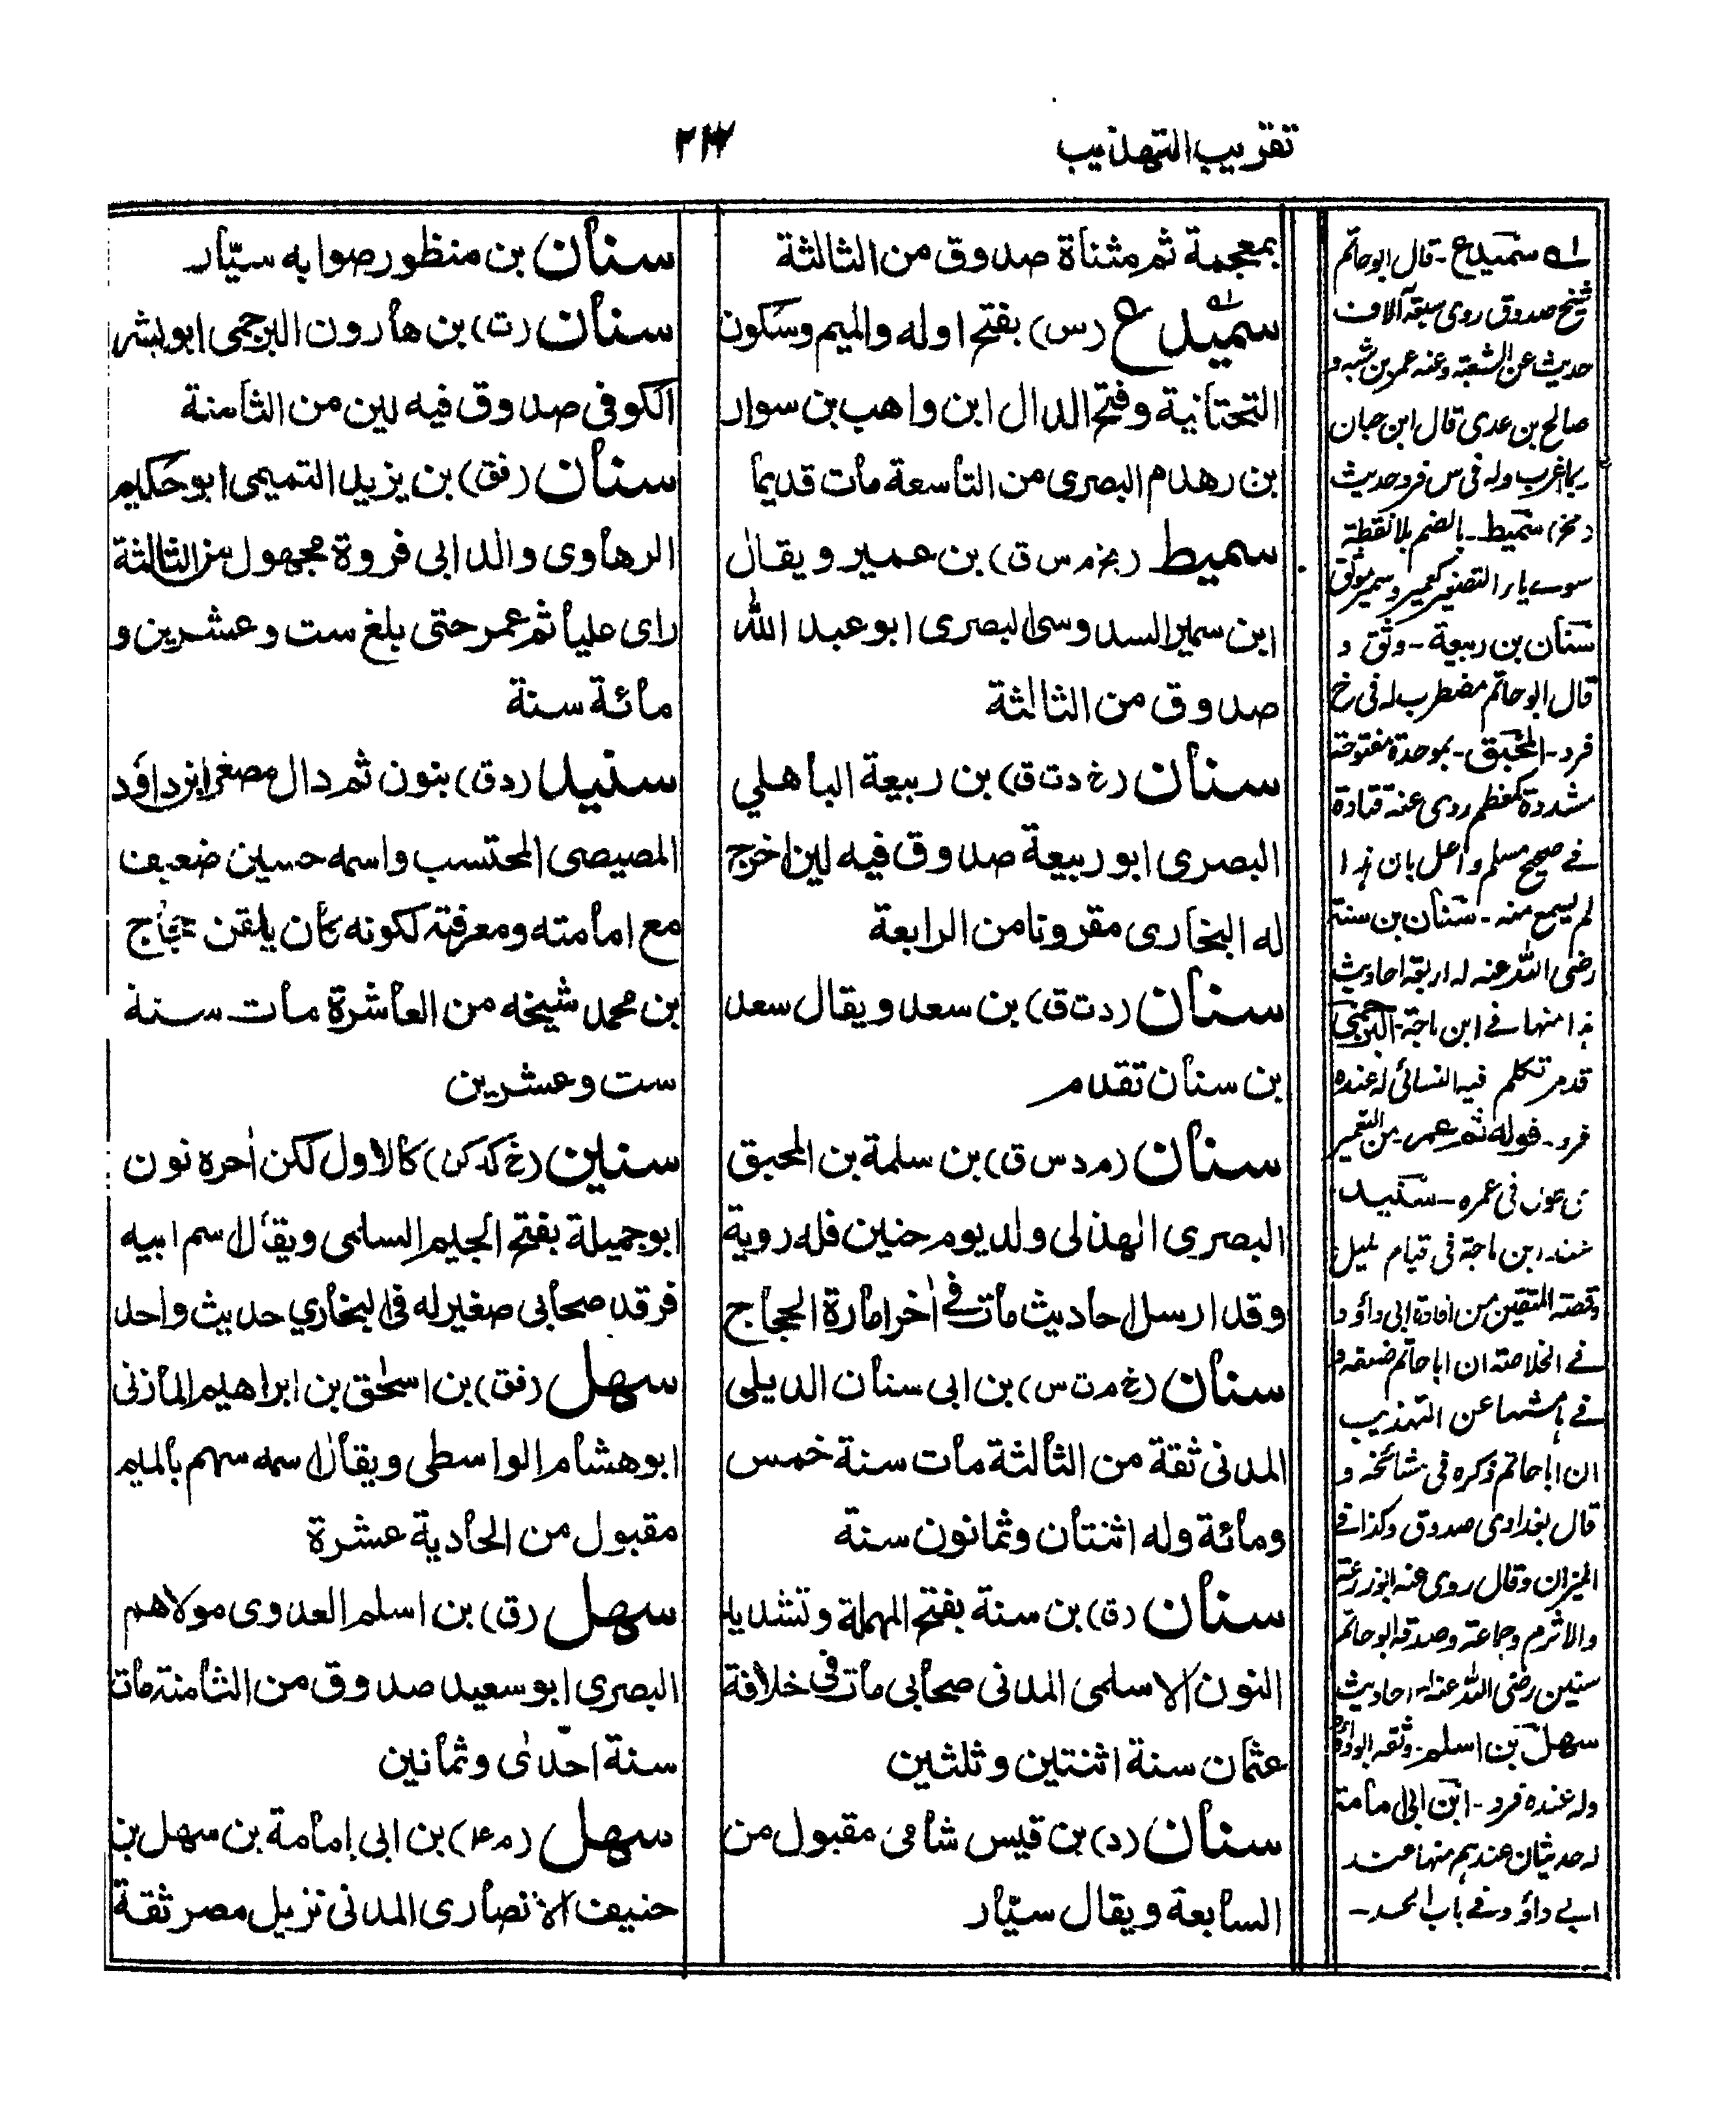 تقريب التهذيب
بمعجمة ثم مثناة صدوق من الثالثة
سميدع (س) بفتح اوله والميم وسكون
التحتانية وفتح الدال ابن واهب بن سوار
بن رهدم البصرى من التاسعة مات قديما
سميط (بخ م س ق) بن عمير ويقال
ابن سمير السدوسى البصرى ابو عبد الله
صدوق من الثالثة
سنان (خ د ت ق) بن ربيعة الباهلي
البصرى ابو ربيعة صدوق فيه لين اخرج
له البخارى مقرونا من الرابعة
سنان (د ت ق) بن سعد ويقال سعد
بن سنان تقدم
سنان (م د س ق) بن سلمة بن المحبق
البصرى الهذلى ولد يوم حنين فله روية
وقد ارسل احاديث مات فى أخر امارة الحجاج
سنان (خ م ت س) بن ابى سنان الديلى
المدنى ثقة من الثالثة مات سنة خمس
ومائة وله اثنتان وثمانون سنة
سنان (ق) بن سنة بفتح المهملة وتشديد
النون الاسلمى المدنى صحابى مات فى خلافة
عثمان سنة اثنتين وثلثين
سنان (د) بن قيس شامى مقبول من
السابعة ويقال سيّار
سنان بن منظور صوابه سيّار
سنان (ت) بن هارون البرجمى ابو بشر
الكوفى صدوق فيه لين من الثامنة
سنان (فق) بن يزيد التميمى ابو حكيم
الرهاوى والد ابى فروة مجهول من الثالثة
راى عليا ثم عمر حتى بلغ ست وعشرين و
مائة سنة
سنيد (د ق) بنون ثم دال مصغر ابن داؤد
المصيصى المحتسب واسمه حسين ضعيف
مع امامته ومعرفته لكونه كان يلقن حجاج
بن محمد شيخه من العاشرة مات سنة
ست وعشرين
سنين (خ كد كن) كالاول لكن أخره نون
ابو جميلة بفتح الجيم السلمى ويقال اسم ابيه
فرقد صحابى صغير له فى البخاري حديث واحد
سهل (فق) بن اسحٰق بن ابراهيم المازنى
ابو هشام الواسطى ويقال اسمه سهم بالميم
مقبول من الحادية عشرة
سهل (ق) بن اسلم العدوى مولاهم
البصرى ابو سعيد صدوق من الثامنة مات
سنة احدى وثمانين
سهل (م ع) بن ابى امامة بن سهل بن
حنيف الانصارى المدنى نزيل مصر ثقة
سميدع - قال ابو حاتم
شيخ صدوق روى سبعة آلاف
حديث عن الشعبة وعنه عمر بن شبه و
صالح بن عدى قال ابن حبان
ربما اغرب وله فى س فرد حديث
سميط - بالضم بلا نقطة
سنان بن ربيعة - وثق و
قال ابو حاتم مضطرب له فى خ
فرد - المحبق - بموحدة مفتوحة
مشددة كمعظم روى عنه قتادة
فے صحيح مسلم واعل بان هذا
لم يسمع منه - سنان بن سنة
رضى الله عنه له اربعة احاديث
هذا منها فے ابن ماجة - البرجمى
تكلم فيه النسائى له عنده
فرد - قوله ثم عمر - من التعمير
فى عمره - سنيد
ابن ماجة فى قيام ليل
فے الخلاصة ان ابا حاتم ضعفه و
فے هامشها عن التهذيب
ان ابا حاتم ذكره فى مشائخه و
قال بغدادى صدوق وكذا فے
الميزان وقال روى عنه ابو زرعة
والاثرم وجماعة وصدقه ابو حاتم
سنين رضى الله عنه له احاديث
سهل بن اسلم - وثقه ابو داؤد
وله عنده فرد - ابن ابى امامة
له حديثان عندهم منها عند
ابے داؤد فے باب الحسد -